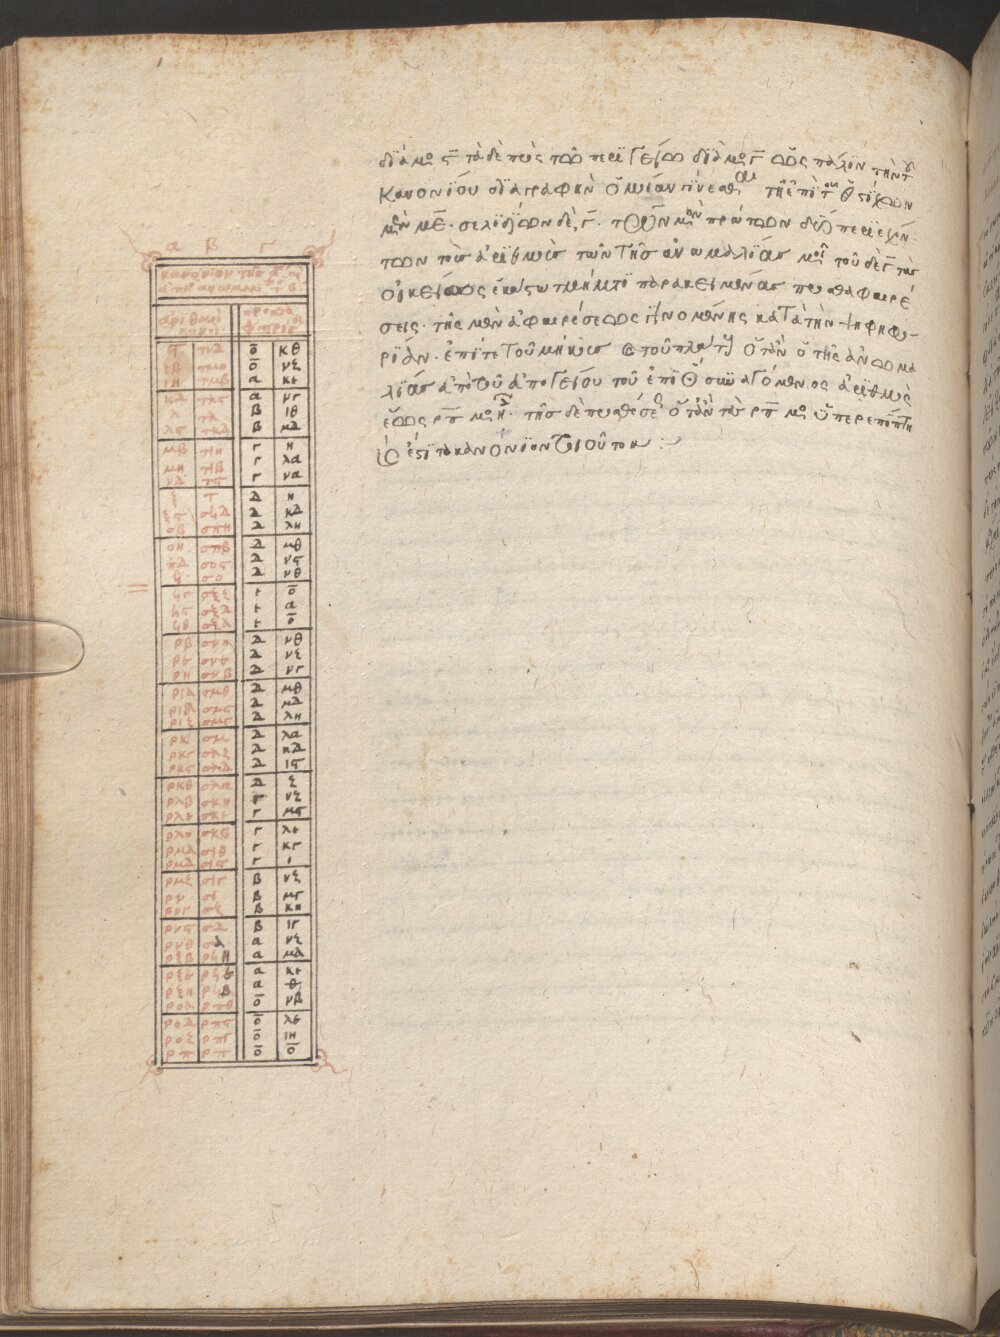 α β γ
κανόνιον τῆς α
ἀριθμοὶ κοινοί
ϛ τνδ ο κθ
ιβ τμη ο νζ
ιη τμβ α κε
κδ τλϛ α νγ
λ τλ β ιθ
λϛ τκδ β μδ
μβ τιη γ η
μη τιβ γ λα
νδ τϛ γ να
ξ τ δ η
ξϛ σϟδ δ κδ
οβ σπη δ λη
οη σπβ δ μθ
πδ σοϛ δ νϛ
ϟ σο δ νθ
ϟγ σξζ ε ο
ϟϛ σξδ ε α
ϟθ σξα ε ο
ρβ σνη δ νθ
ρε σνε δ νζ
ρη σνβ δ νγ
ρια σμθ δ μθ
ριδ σμϛ δ μδ
ριζ σμγ δ λη
ρκ σμ δ λα
ρκγ σλζ δ κδ
ρκϛ σλδ δ ιϛ
ρκθ σλα δ ζ
ρλβ σκη γ νζ
ρλε σκε γ μϛ
ρλη σκβ γ λε
ρμα σιθ γ κγ
ρμδ σιϛ γ ι
ρμζ σιγ β νζ
ρν σι β μγ
ρνγ σζ β κη
ρνϛ σδ β ιγ
ρνθ σα α νζ
ρξβ ρϟη α μα
ρξε ρϟε α κε
ρξη ρϟβ α θ
ροα ρπθ ο νβ
ροδ ρπϛ ο λε
ροζ ρπγ ο ιη
ρπ ρπ ο ο
διὰ μο ϛ τὰ δὲ πρὸς τῷ περιγείῳ διὰ μο γ ὡς πάλιν τὴν τ
κανονίου διαγραφὴν ὁμοίαν γίνεσθαι τῇ ἐπὶ τοῦ ☉ στίχων
μὲν με · σελιδίων δὲ γ · τῶν μὲν πρώτων δύο περιεχόν
των τοὺς ἀριθμοὺς τῶν τῆς ἀνωμαλίας μοι τοῦ δὲ γ τὰς
οἰκείας ἑκάστω τμήματι παρακειμένας προσθαφαιρέ
σεις · τῆς μὲν ἀφαιρέσεως γινομένης κατὰ τὴν ψηφηφο
ρίαν · ἐπί τε τοῦ μήκους καὶ τοῦ πλάτους ὅταν ὁ τῆς ἀνωμα
λίας ἀπὸ τοῦ ἀπογείου τοῦ ἐπι συναγόμενος ἀριθμὸς
ἕως ρπ μο ᾖ · τῆς δὲ προσθέσε ὅταν τὰς ρπ μο ὑπερεκπίπτη
καὶ ἔστι τὸ κανόνιον τοιοῦτον :~